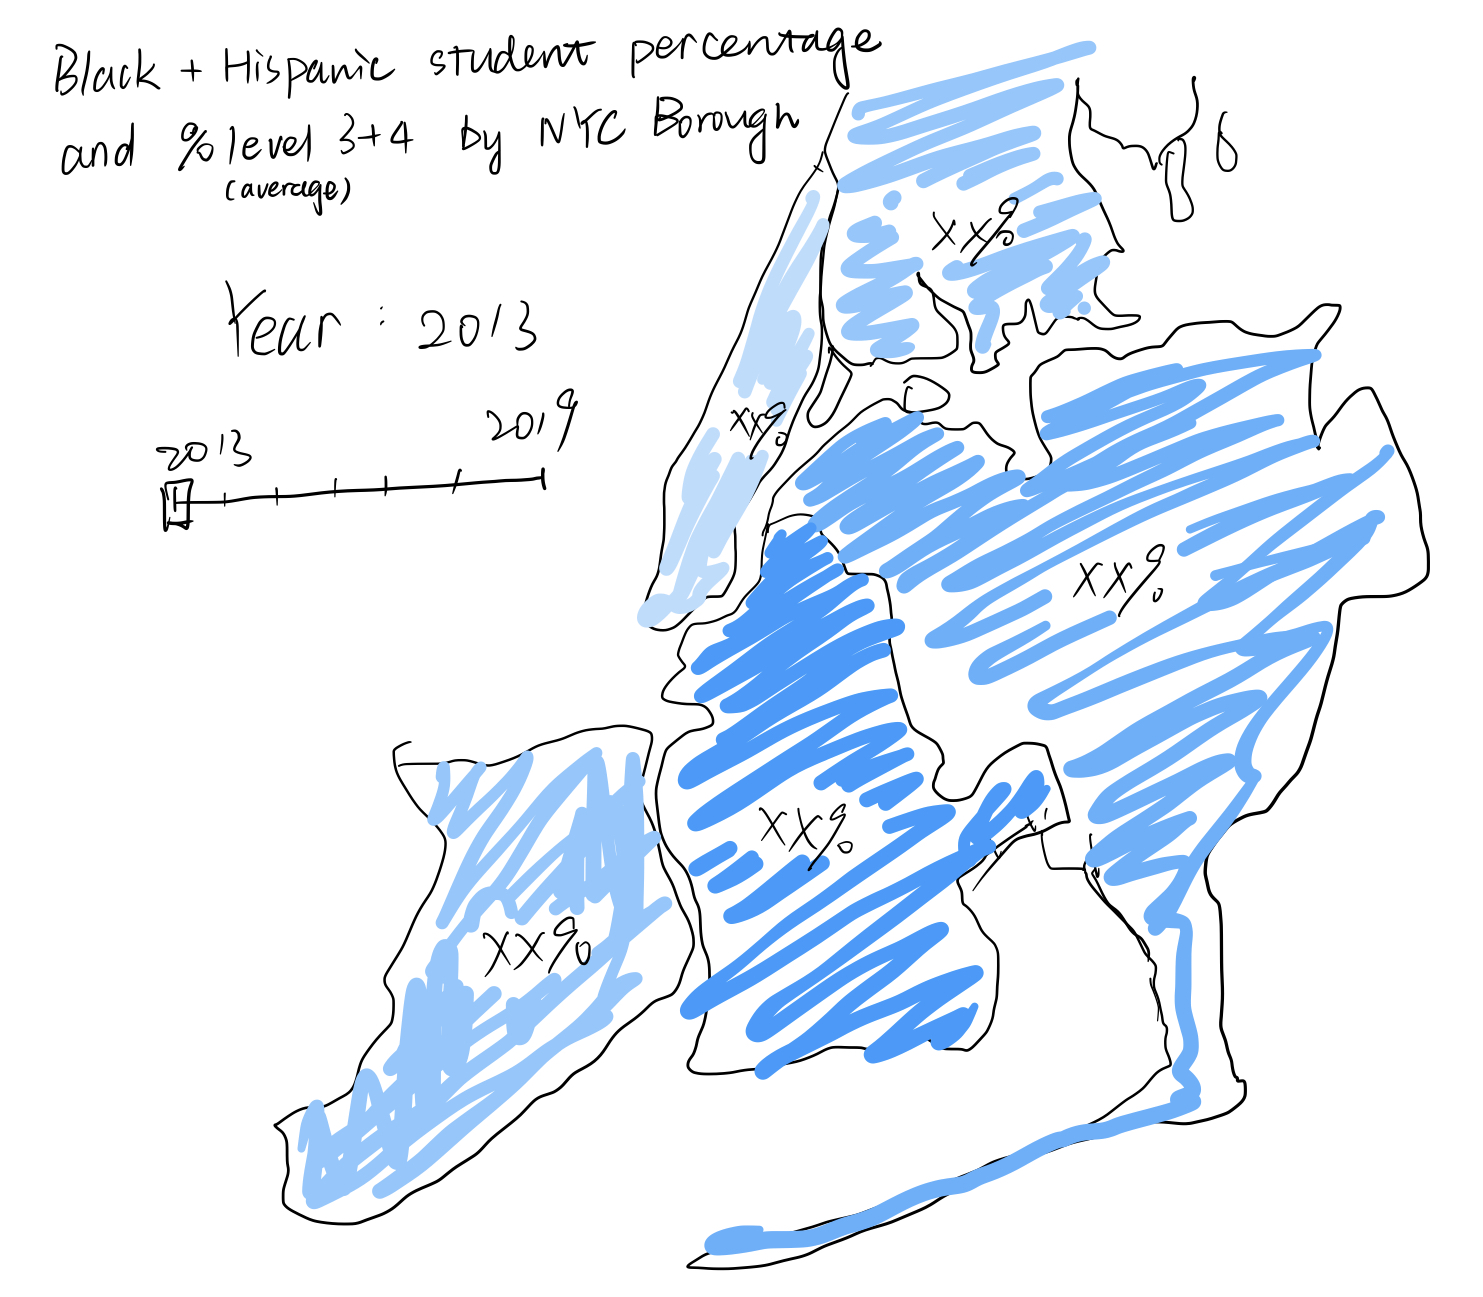 Black + Hispanic student percentage
and % level 3+4 by NYC Borough
(average)
Year : 2013
2013 2019
xx%
xx%
xx%
xx%
xx%